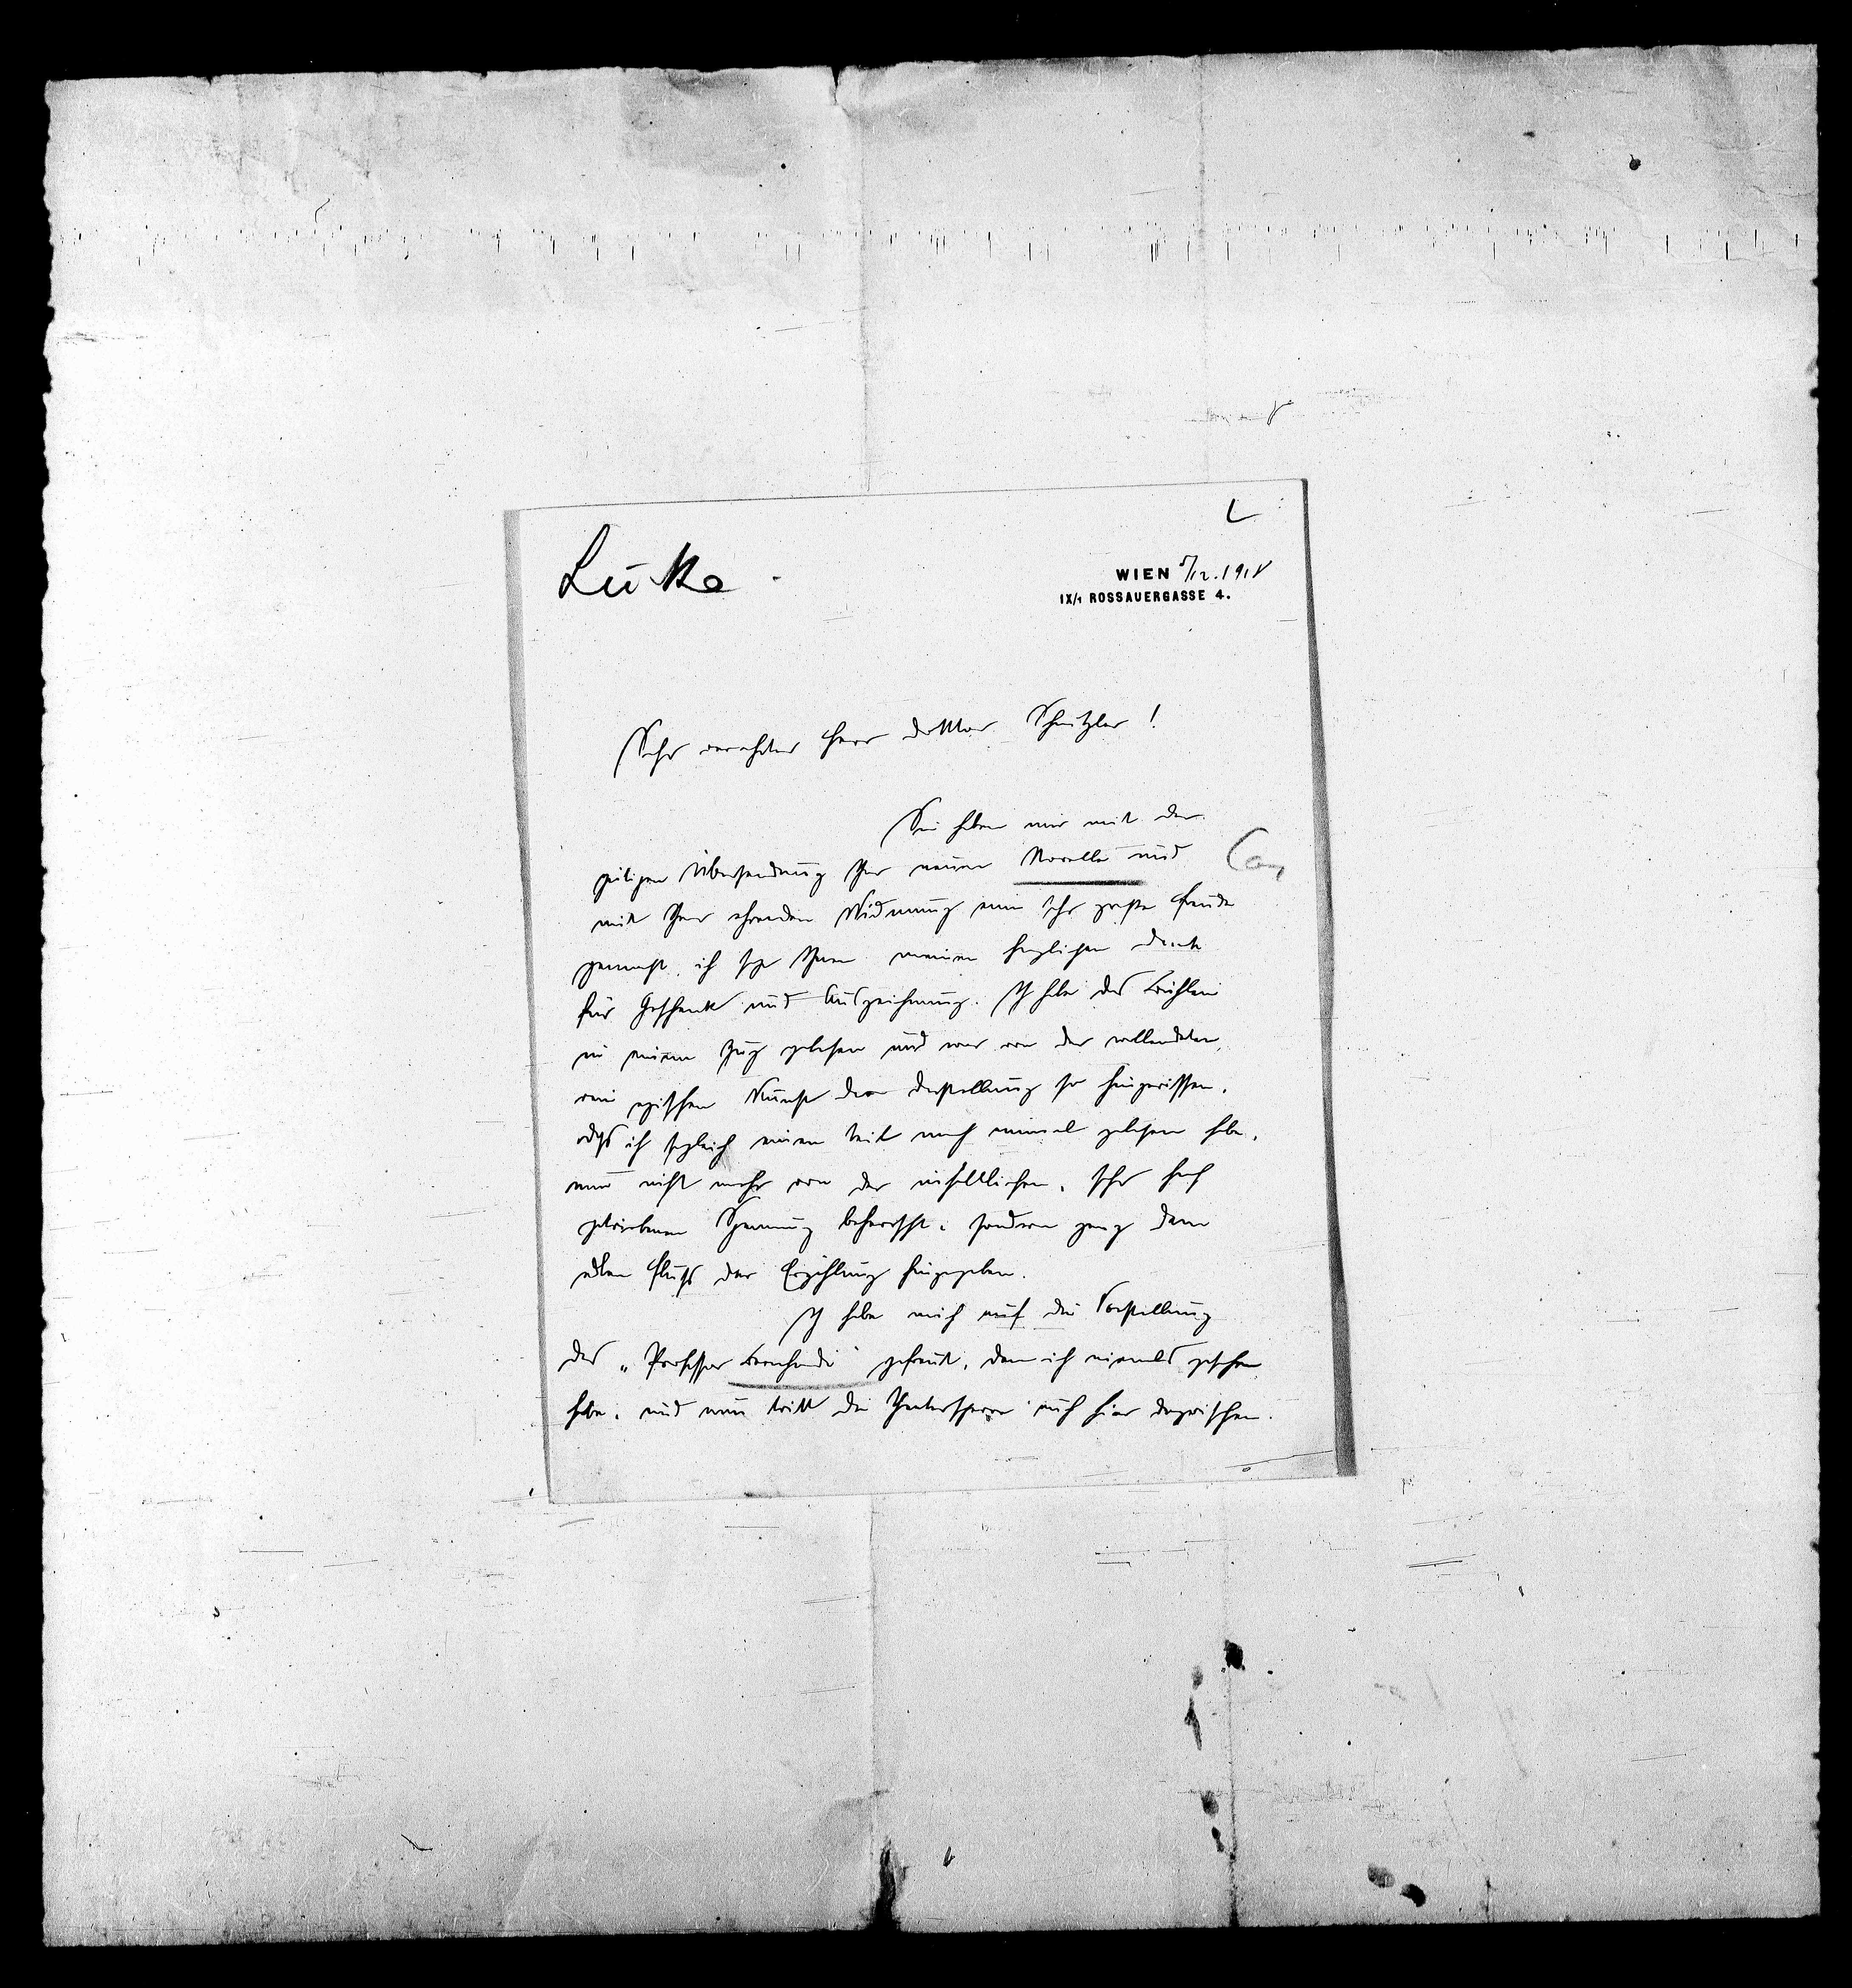 L
Lucka
WIEN 5/12. 1918
IX/1 ROSSAUERGASSE 4.
Sehr verehrter Herr Doktor Schnitzler!
Sie haben mir mit der
gütigen Übersendung Ihrer neuen Novelle und
Cas
mit Ihrer ehrenden Widmung eine sehr große Freude
gemacht, ich sage Ihnen meinen herzlichen Dank
für Geschenk und Auszeichnung. Ich habe das Büchlein
in einem Zug gelesen und war von der vollendeten,
rein epischen Kunst der Darstellung so hingerissen,
daß ich sogleich einen Teil noch einmal gelesen habe,
nun nicht mehr von der inhaltlichen, sehr hoch
getriebenen Spannung beherrscht, sondern ganz dem
edlen Fluß der Erzählung hingegeben.
Ich habe mich auf die Vorstellung
des „Professor Bernhardi“ gefreut, den ich niemals gesehen
habe, und nun tritt die Theatersperre auch hier dazwischen.